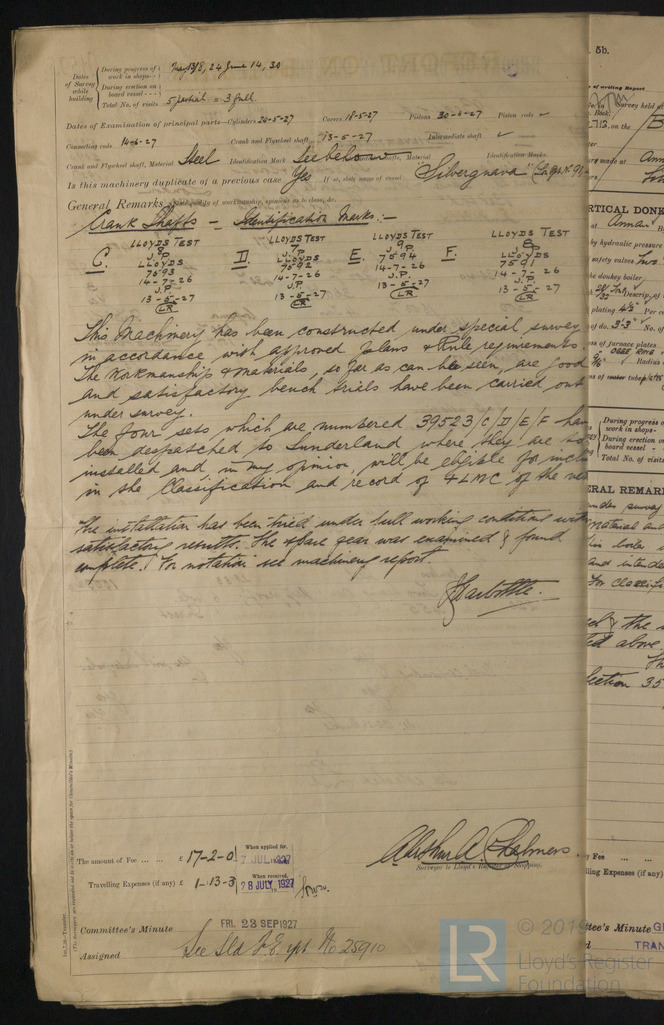 Dates of Survey while building
During progress of work in shops -- May 13/8, 24 June 14, 30
During erection on board vessel ---
Total No. of visits 5 partial = 3 full.
Dates of Examination of principal parts—Cylinders 24-5-27 Covers 18-5-27 Pistons 30-6-27 Piston rods ✓
Connecting rods 14-6-27 Crank and Flywheel shaft 13-5-27 Intermediate shaft ✓
Crank and Flywheel shaft, Material Steel Identification Mark See below shafts, Material Identification Marks
Is this machinery duplicate of a previous case Yes If so, state name of vessel Silvergnava
General Remarks
Crank Shafts — Identification Marks:—
C. LLOYDS TEST 8 J.P LLOYDS 7593 14-7-26 J.P. 13-5-27 LR
D. LLOYDS TEST 7 J.P LLOYDS 7592 14-7-26 J.P. 13-5-27 LR
E. LLOYDS TEST 9 J.P 7594 14-7-26 J.P. 13-5-27 LR
F. LLOYDS TEST 6 J.P LLOYDS 7591 14-7-26 J.P. 13-5-27 LR
This Machinery has been constructed under special survey
in accordance with approved plans & Rule requirements.
The Workmanship & materials, so far as can be seen, are good
and satisfactory bench trials have been carried out
under survey.
The four sets which are numbered 39523/C/D/E/F have
been despatched to Sunderland where they are to
installed and in my opinion, will be eligible for
in the Classification and record of + LMC of the
The installation has been tried under full working conditions with
satisfactory results. The spare gear was examined & found
complete. For notation see machinery report.
The amount of Fee ... ... £ 17-2-0 When applied for, 7 JUL 1927
Travelling Expenses (if any) £ 1-13-3 When received, 28 JULY 1927
Arthur A Chalmers.
Surveyor to Lloyd's Register of Shipping.
Committee's Minute FRI. 23 SEP 1927
Assigned See Sld F.E. rpt No 25910
5b.
of writing Report
Survey held
712, on the
made at Annan
RTICAL DONK
at Annan
by hydraulic pressure
safety valves Two
the donkey boiler
plating 4½
of do. 3-3 No. of
of furnace plates
OGEE RING
Radius
During progress of work in shops-
During erection on board vessel -
Total No. of visits
ERAL REMAR
under survey
Material and
boiler
and intended
for classifi
& the
ted above.
lection 35
y Fee ... ...
lling Expenses (if any)
tee's Minute
TRAN
LR
© 2019
Lloyd's Register
Foundation